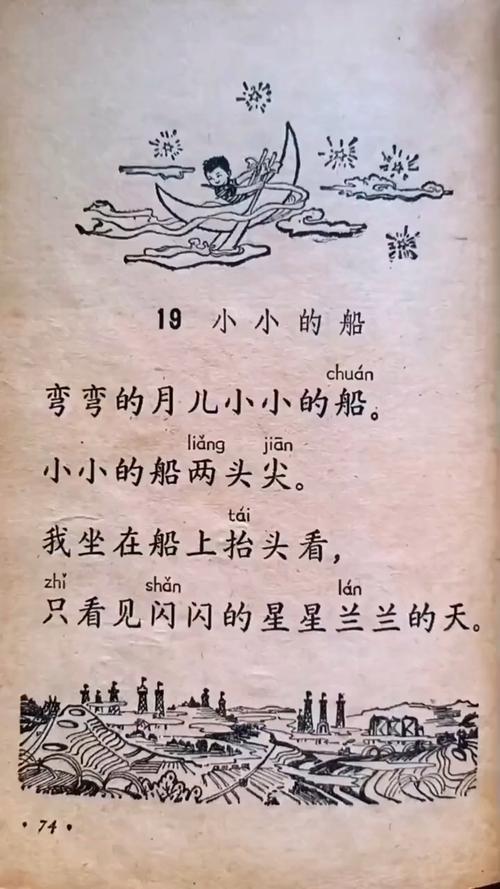 19 小小的船
chuán
弯弯的月儿小小的船。
liǎng jiān
小小的船两头尖。
tái
我坐在船上抬头看，
zhǐ shǎn lán
只看见闪闪的星星兰兰的天。
· 74 ·